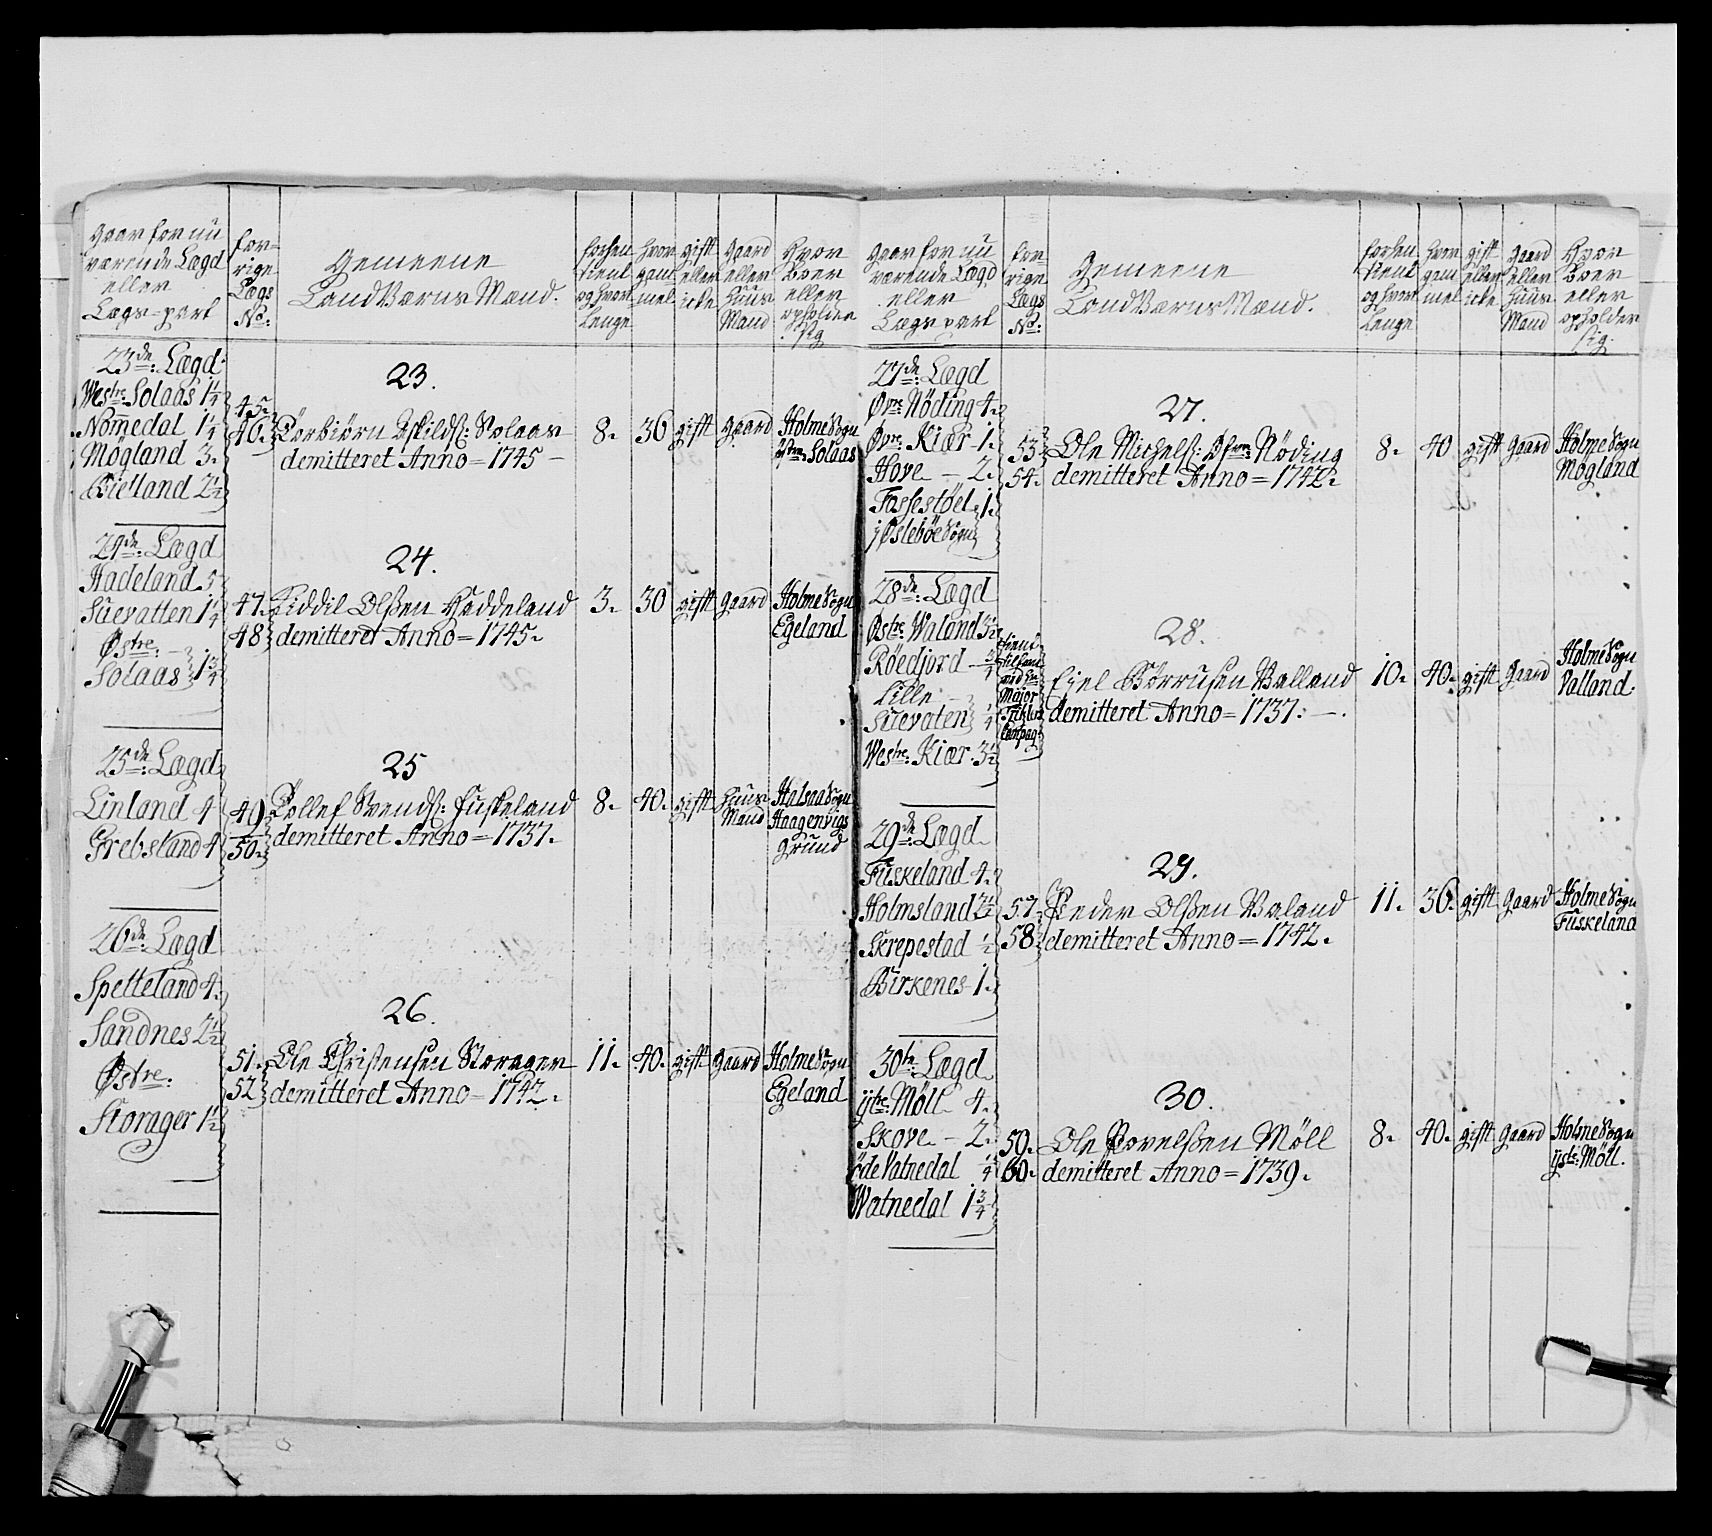 Gaar for nu
værende Lægd
eller
Lægs-part
for-
rige
Lægs
No:
Gemeene
LandVærns Mænd.
for hen
tient
og hvor
lenge
hvor
gam
mel
gift
eller
icke
Gaard
eller
Huus
Mand
Hvor
boer
eller
opholder
sig
23de: Lægd
Westre: Solaas 1 1/4
Nomedal 1 1/4
Mögland 3.
Bielland 2 1/2
45.
46.
23.
Torbiörn Eskilds: Solaas
demitteret Anno = 1745 –
8.
36
gift
gaard
Holme Sogn
Østre Solaas
24de: Lægd
Hadeland 5
Suevatten 1 1/4
Østre: –
Solaas 1 3/4
47.
48
24.
Kiddil Olßen Haddeland
demitteret Anno = 1745.
3.
30
gift
gaard
Holme Sogn
Egeland
25de: Lægd
Linland 4
Grebsland 4
49
50.
25
Tollef Svends: Fuskeland
demitteret Anno = 1737.
8.
40.
gift
Huus
Mand
Halsaa Sogn
Haagenvigs
Grund
26de: Lægd
Spetteland 4.
Sandnes 2 1/2
Østre:
Storager 1 1/2
51.
52
26.
Ole Christensen Storager
demitteret Anno = 1742.
11.
40.
gift
gaard
Holme Sogn
Egeland
Gaar for nu
værende Lægd
eller
Lægs part
for
rige
Lægs
No:
Gemeene
LandVærns Mænd.
for hen
tient
og hvor
lenge
hvor
gam
mel
gift
eller
icke
Gaard
eller
Huus
Mand
Hvor
boer
eller
opholder
sig.
27de: Lægd
Øvre Nöding 4.
Øvre: Kiær 1.
Hove – 2.
Fossestöel 1.
j Øsleböe Sogn
53.
54.
27.
Ole Michels: Øfvre Nöding
demitteret Anno = 1742.
8.
40
gift
gaard
Holme Sogn
Mögland
28de: Lægd
Østre: Waland 3 1/2
Röedjord – 3/4
Lille –
Suevaten 1/4
Westre: Kiær. 3 1/2
Major
Compag:
28.
Eiel Börrusen Valland
demitteret Anno = 1737. –.
10.
40.
gift
Gaard
Holme Sogn
Valland.
29de: Lægd
Fuskeland 4.
Holmsland 2 1/2
Skrepestad 1/2
Birkenes 1.
57.
58.
29.
Peder Olßen Valand
demitteret Anno = 1742.
11.
36.
gift
Gaard
Holme Sogn
Fuskeland
30te: Lægd
ÿtre: Möll 4.
Skove – 2.
öde Vatnedal 1/4
Watnedal 1 3/4
59.
60.
30.
Ole Povelßen Möll
demitteret Anno = 1739.
8.
40.
gift
gaard
Holme Sogn
ÿtre: Möll.